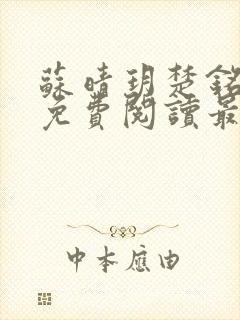 蘇晴玥楚銘
免費閱讀最
中本應由